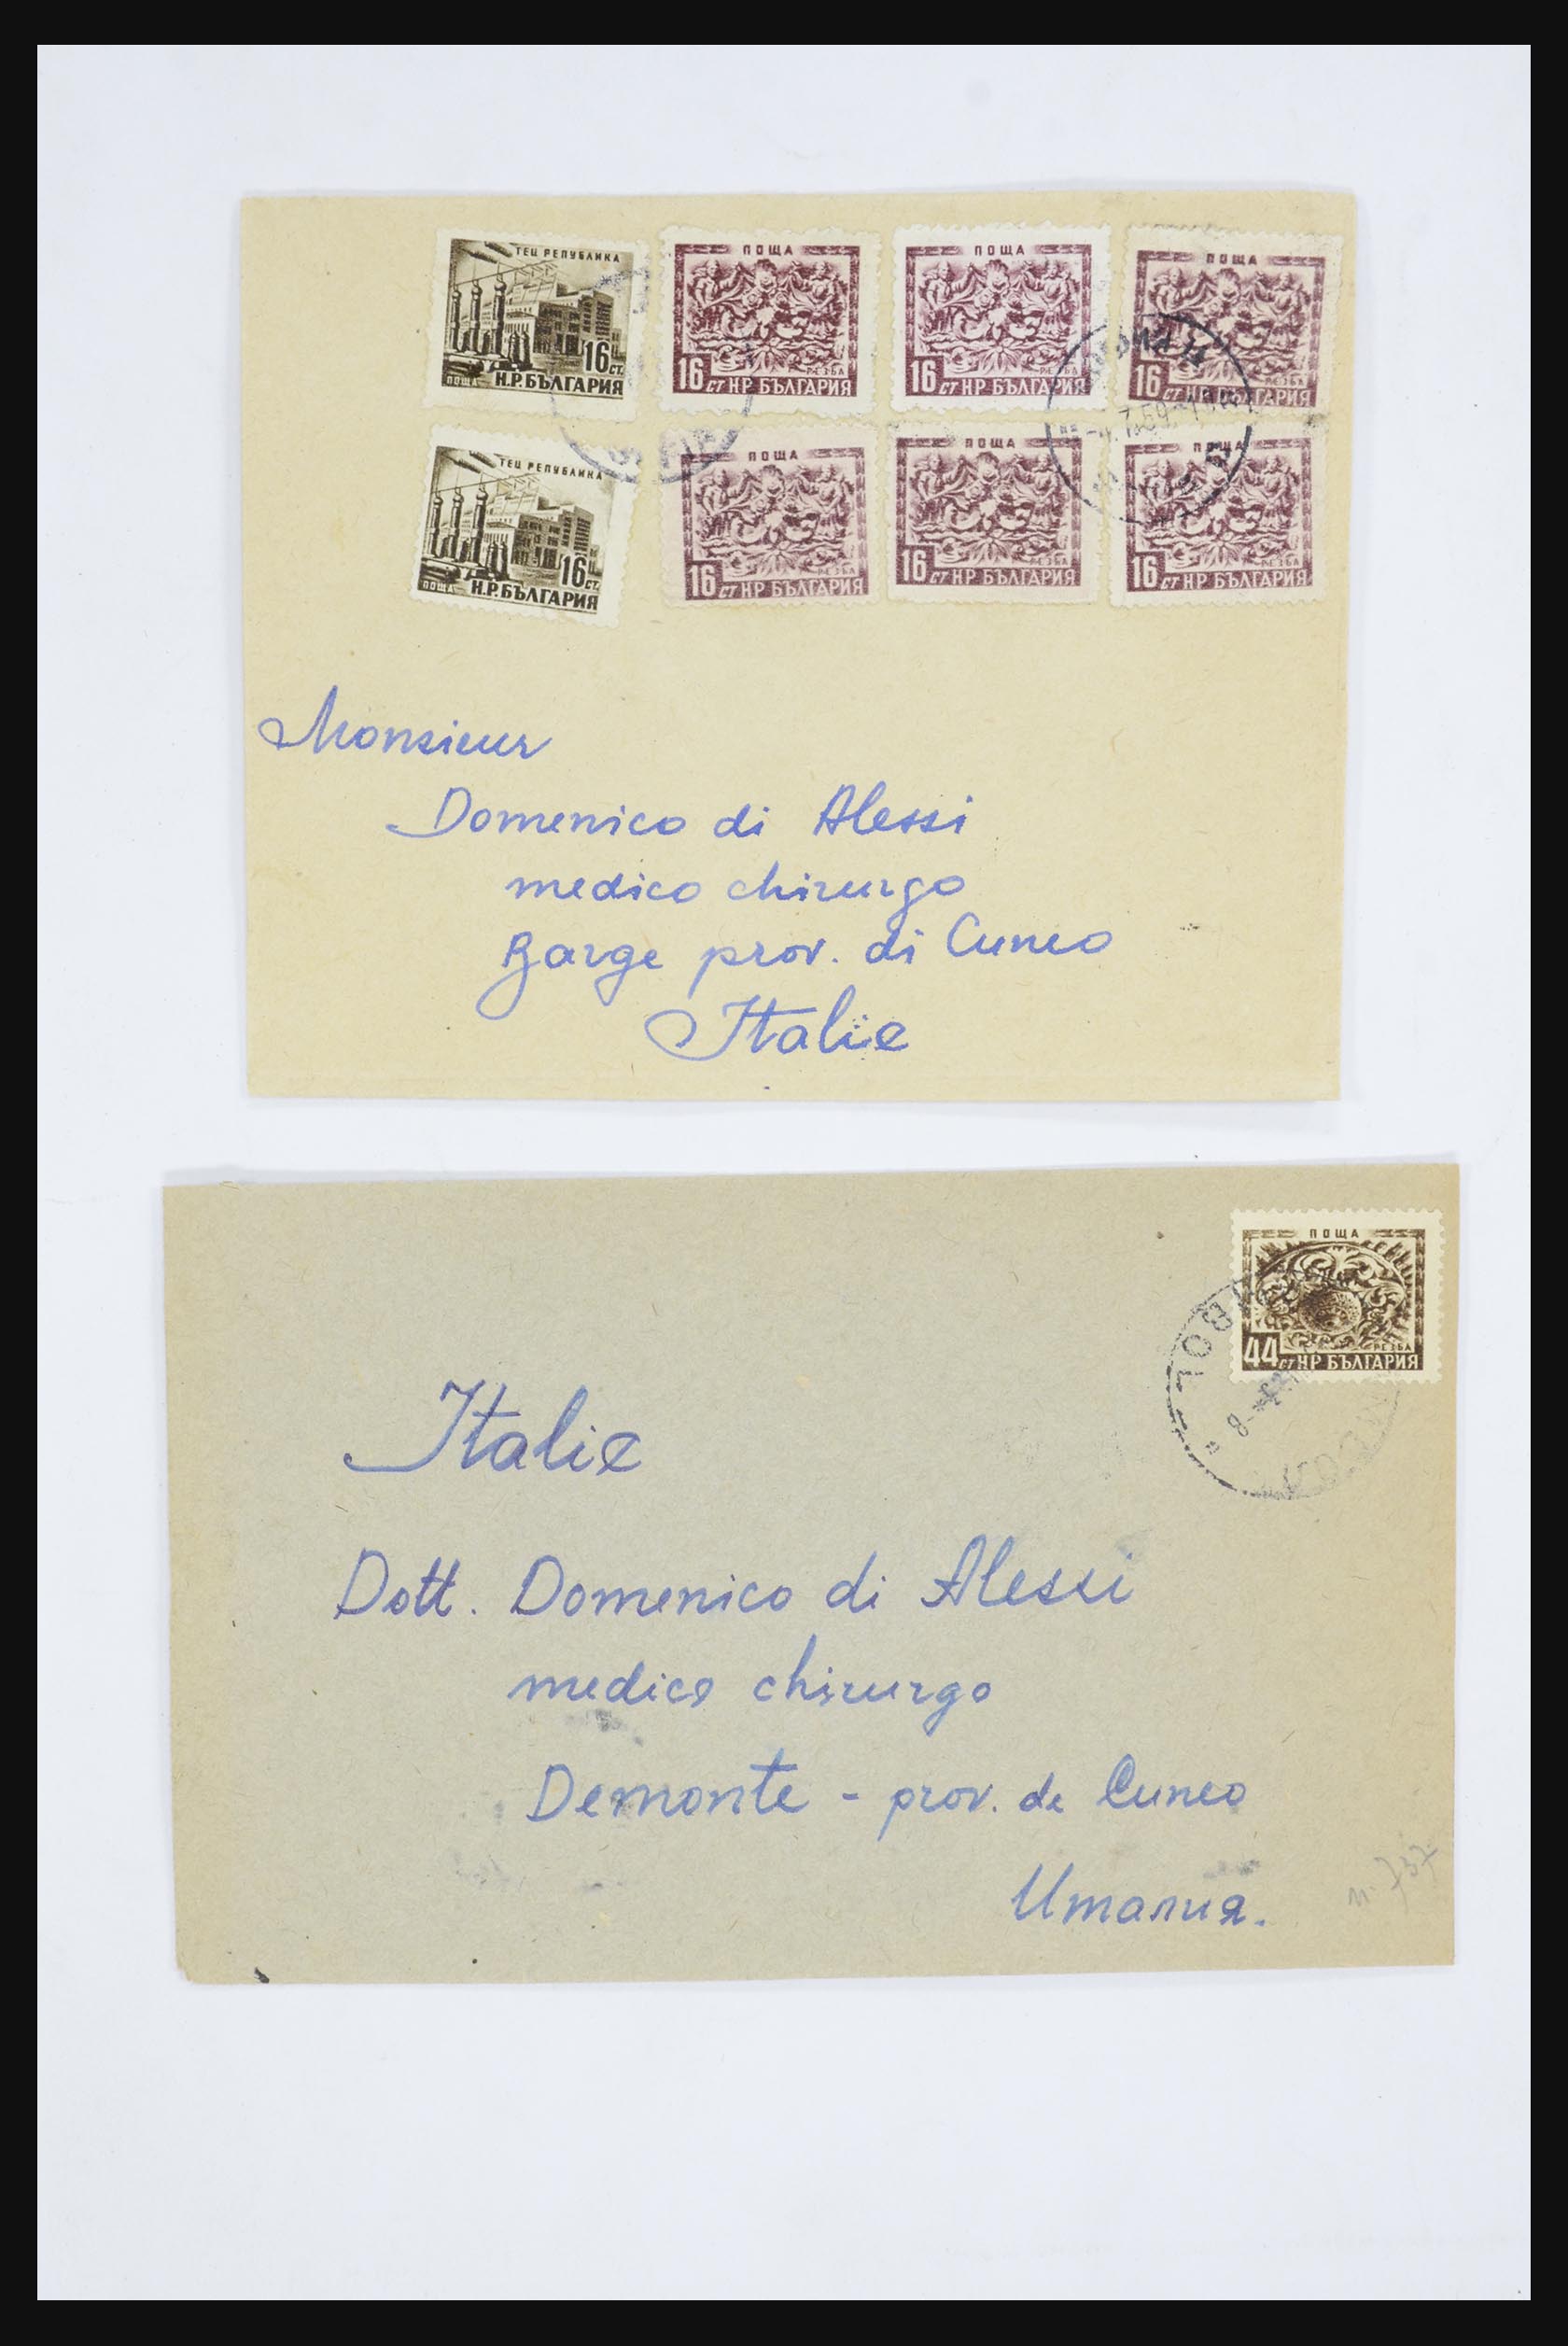 ТЕЦ РЕПУБЛИКА
16 СТ.
ПОЩА Н.Р.БЪЛГАРИЯ
ПОЩА
РЕЗБА
16 СТ НР БЪЛГАРИЯ
ПОЩА
РЕЗБА
16 СТ НР БЪЛГАРИЯ
ПОЩА
РЕЗБА
16 СТ НР БЪЛГАРИЯ
ТЕЦ РЕПУБЛИКА
16 СТ.
ПОЩА Н.Р.БЪЛГАРИЯ
ПОЩА
РЕЗБА
16 СТ НР БЪЛГАРИЯ
ПОЩА
РЕЗБА
16 СТ НР БЪЛГАРИЯ
ПОЩА
РЕЗБА
16 СТ НР БЪЛГАРИЯ
Monsieur
Domenico di Alessi
medico chirurgo
Barge prov. di Cuneo
Italie
ПОЩА
РЕЗБА
44 СТ НР БЪЛГАРИЯ
Italie
Dott. Domenico di Alessi
medico chirurgo
Demonte - prov. de Cuneo
Италия.
n. 737